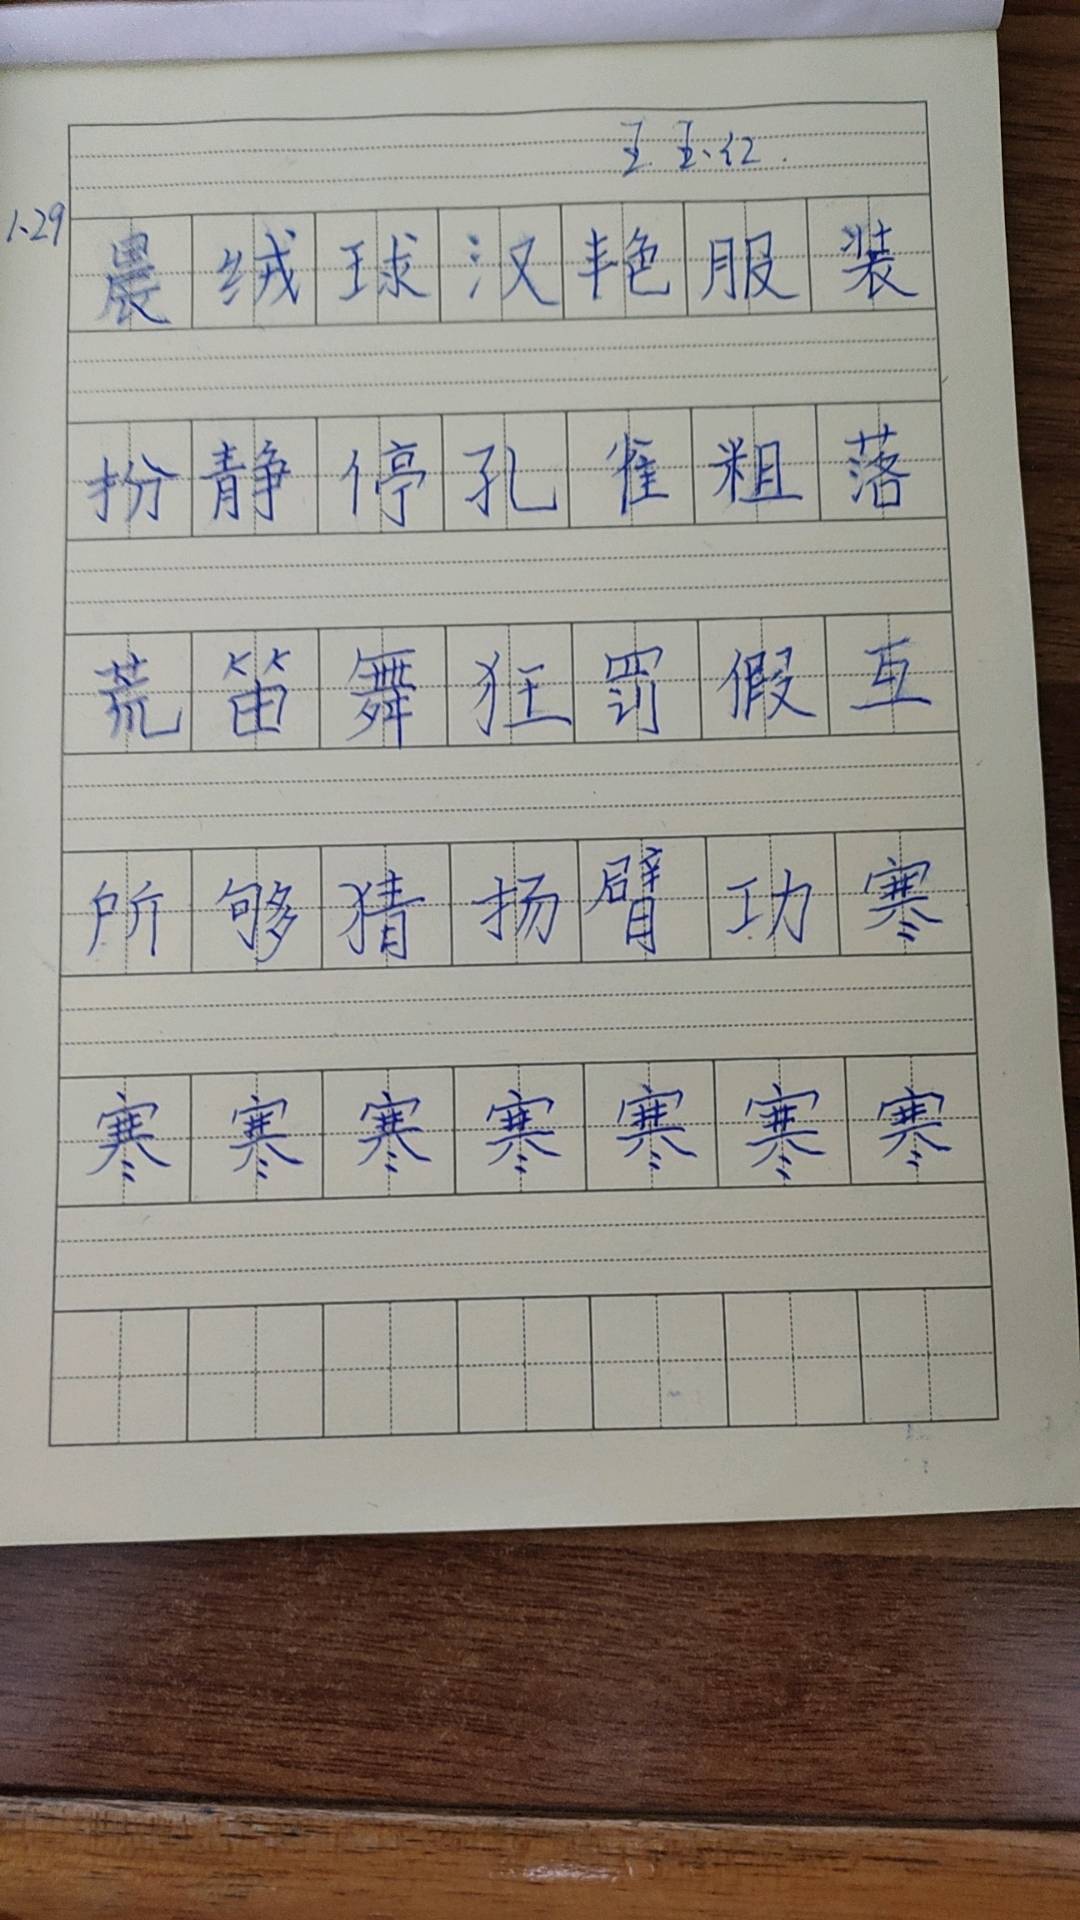 王玉红.
1.29
晨绒球汉艳服装
扮静停孔雀粗落
荒笛舞狂罚假互
所够猜扬臂功寒
寒寒寒寒寒寒寒